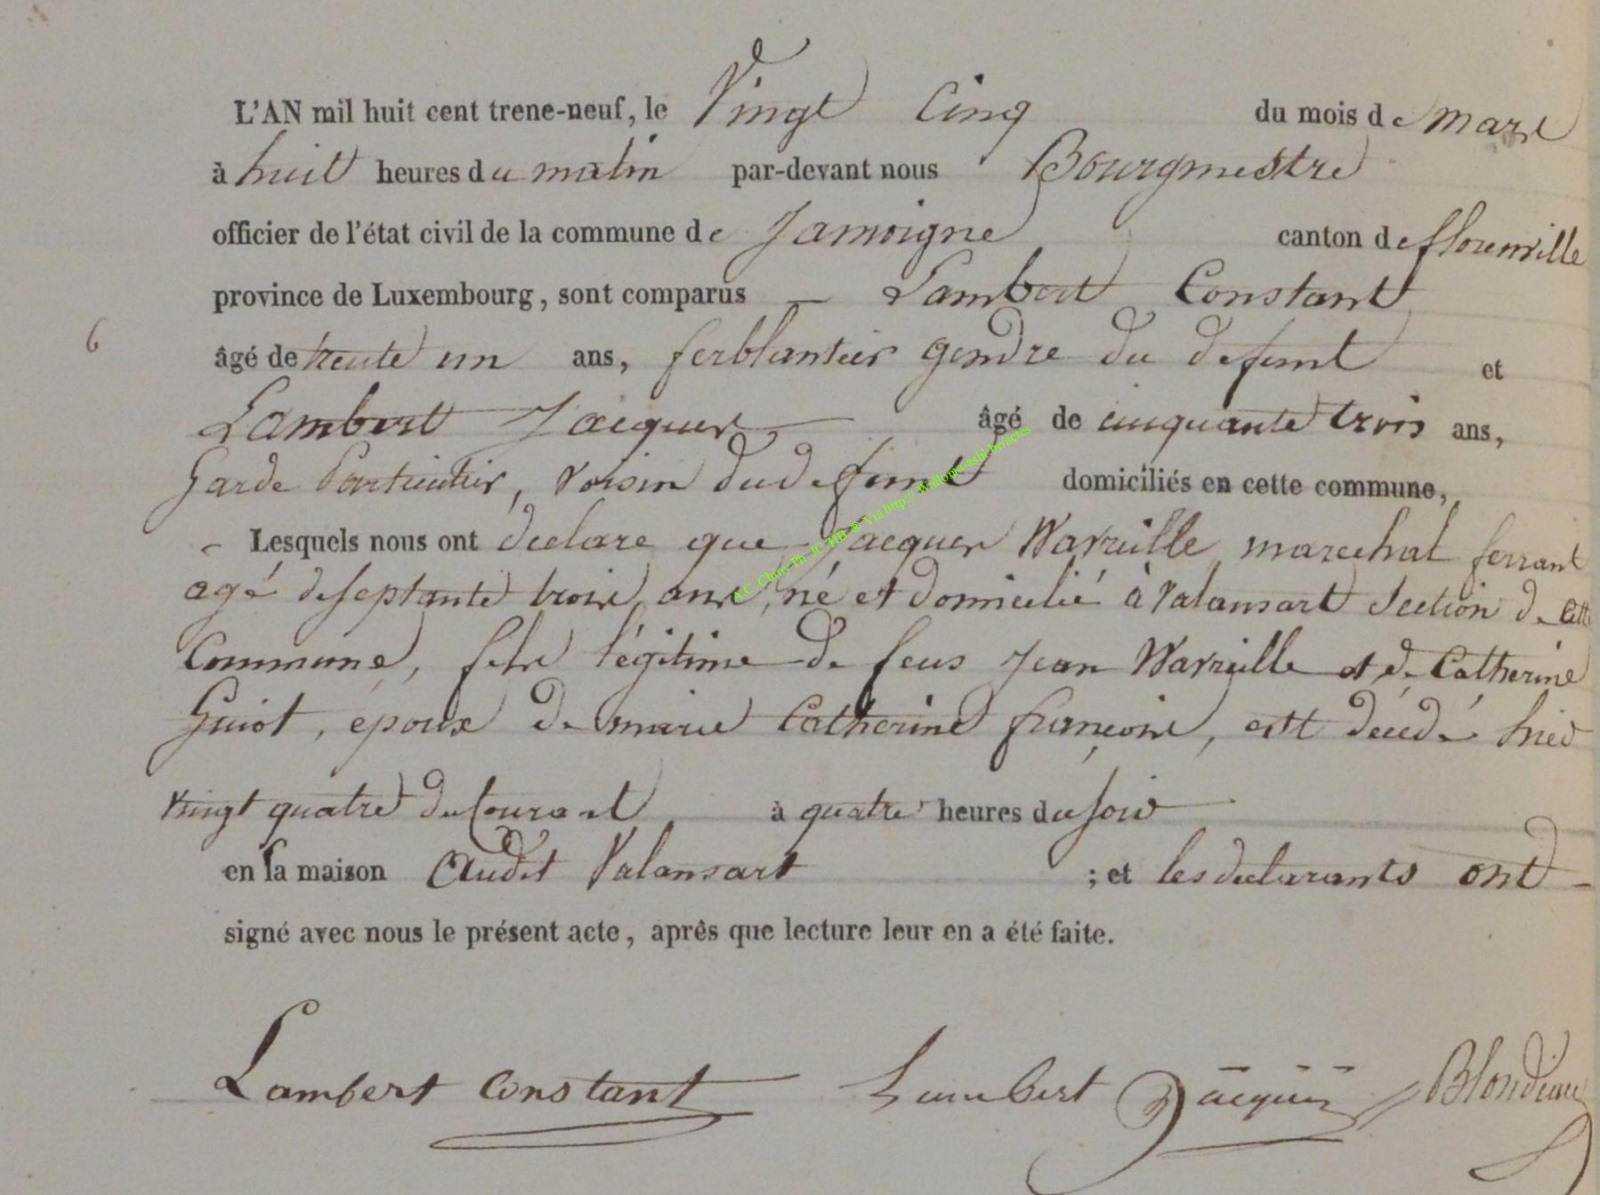 L'AN mil huit cent trene-neuf, le Vingt Cinq du mois de mars
à huit heures du matin par-devant nous Bourgmestre
officier de l'état civil de la commune de Jamoigne canton de florenville
province de Luxembourg, sont comparus Lambert Constant
6
âgé de trente un ans, ferblantier gendre du defunt et
Lambert Jacques âgé de cinquante trois ans,
Garde Particulier, Voisin dud defunt domiciliés en cette commune,
Lesquels nous ont declare que Jacques Warzille marechal ferrant
agé de septante trois ans, né et domicilié à Valansart Section de cette
Commune, fils légitime de feus Jean Warzille et de Catherine
Guiot, époux de marie Catherine françoise, est décédé hier
vingt quatre du Courant à quatre heures du soir
en sa maison Audit Valansart ; et les declarants ont
signé avec nous le présent acte, après que lecture leur en a été faite.
Lambert Constant Lambert Jacques Blondeau